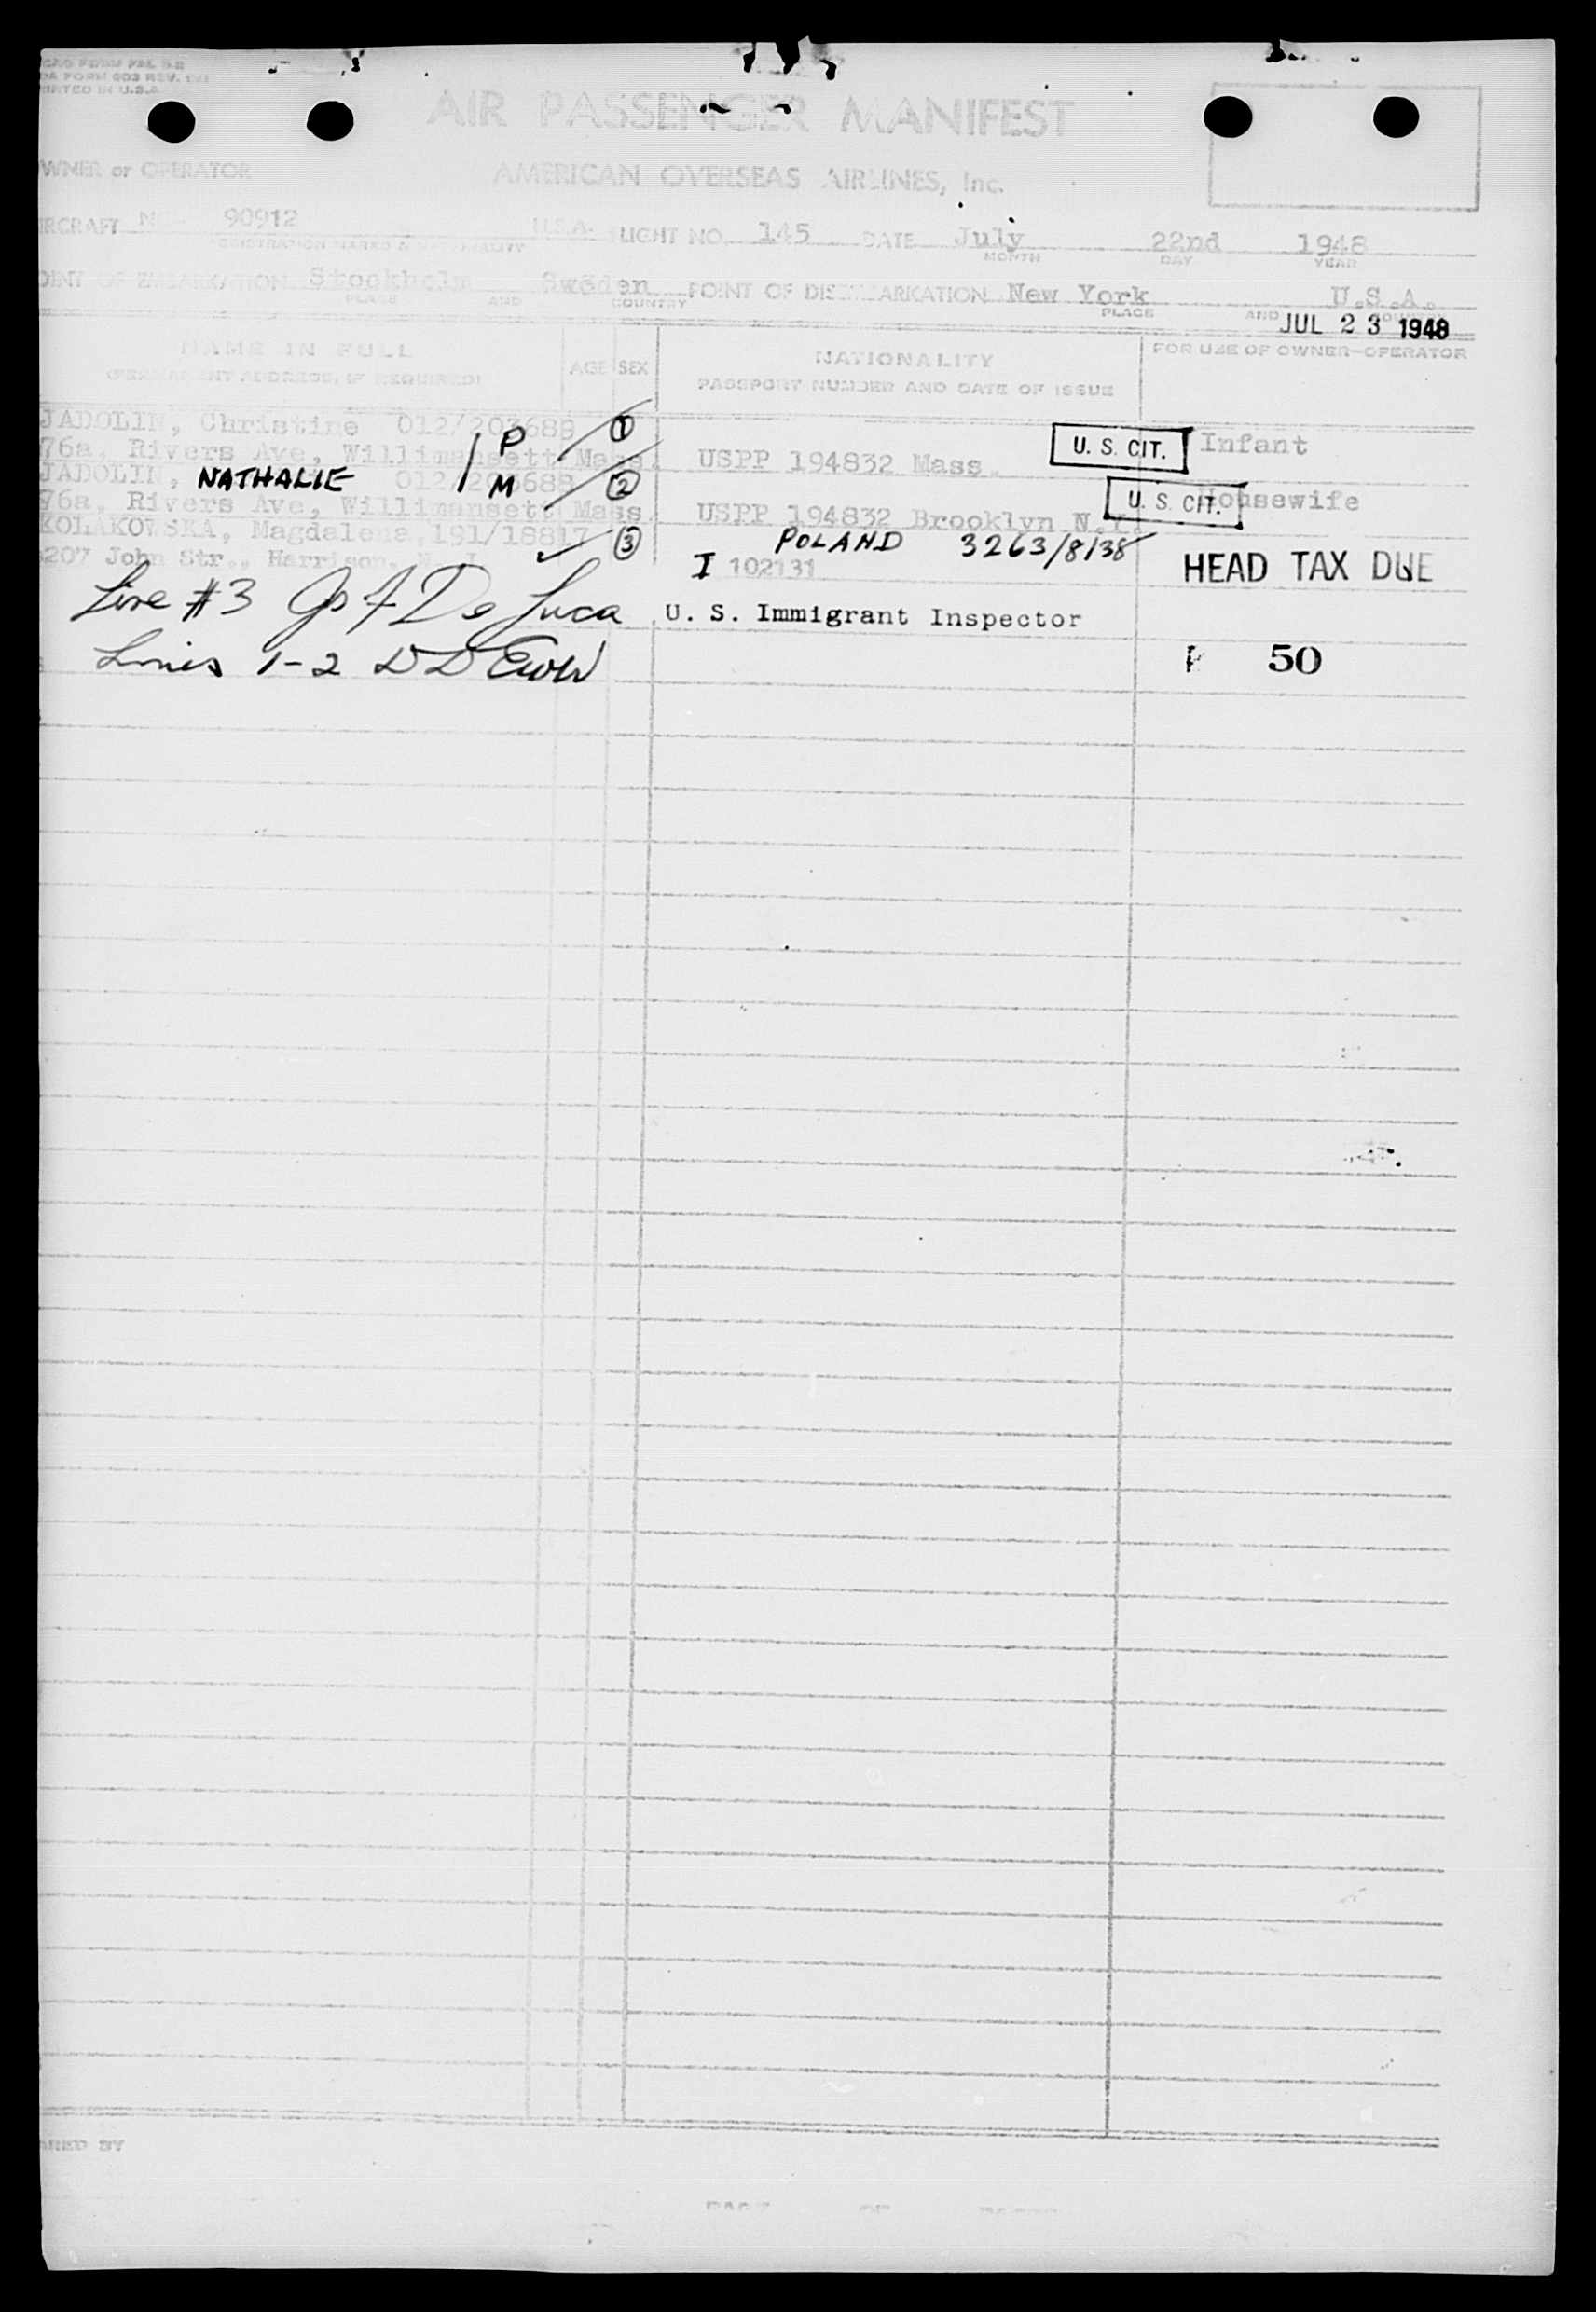 AIR PASSENGER MANIFEST
WNER or OPERATOR AMERICAN OVERSEAS AIRLINES, Inc.
IRCRAFT 90912 U.S.A. LIGHT NO. 145 DATE July 22nd 1948
MONTH DAY YEAR
OINT OF EMBARKATION Stockholm Sweden POINT OF DISEMBARKATION New York U.S.A.
PLACE AND COUNTRY PLACE AND
JUL 23 1948
NAME IN FULL AGE SEX NATIONALITY FOR USE OF OWNER-OPERATOR
(PERMANENT ADDRESS, IF REQUIRED) PASSPORT NUMBER AND DATE OF ISSUE
JADOLIN, Christine 012/203688 P 1
76a, Rivers Ave, Willimansett Mass. USPP 194832 Mass. U. S. CIT. Infant
JADOLIN, NATHALIE 012/203688 M 2
76a, Rivers Ave, Willimansett Mass. USPP 194832 Brooklyn N.Y. U. S. CIT. Housewife
KOLAKOWSKA, Magdalena, 191/18817 3 POLAND 3263/8/38
207 John Str., Harrison, N. J. I 102131 HEAD TAX DUE
Line #3 Jos A De Luca U. S. Immigrant Inspector
Lines 1-2 50
PAGE OF